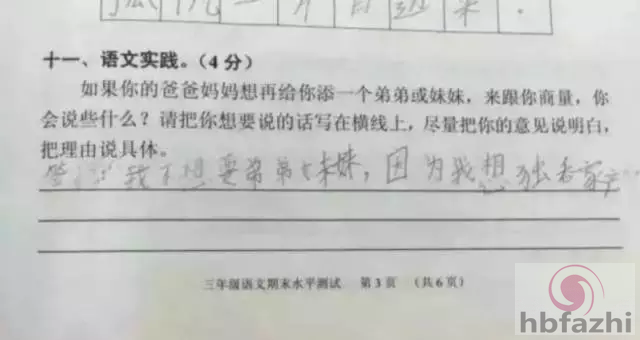 一 片 自 过 来 .
十一、语文实践。（4 分）
如果你的爸爸妈妈想再给你添一个弟弟或妹妹，来跟你商量，你
会说些什么？请把你想要说的话写在横线上，尽量把你的意见说明白，
把理由说具体。
答：我不想要弟弟妹妹，因为我想独吞家产
三年级语文期末水平测试 第 3 页 （共 6 页）
hbfazhi